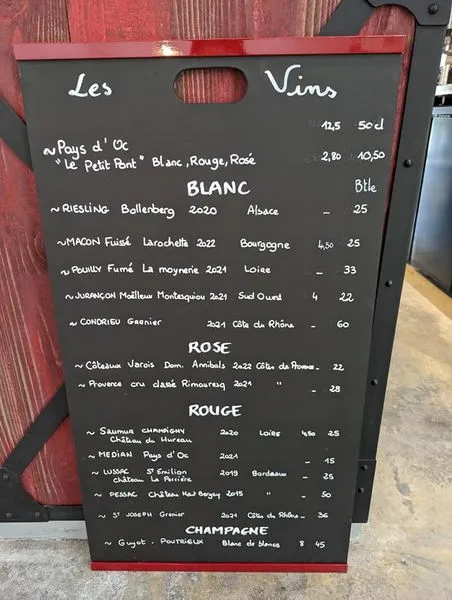 Les Vins
12,5 50cl
~ Pays d'Oc
"Le Petit Pont" Blanc, Rouge, Rosé 2,80 10,50
BLANC Btle
~ RIESLING Bollenberg 2020 Alsace - 25
~ MACON Fuissé Larochette 2022 Bourgogne 4,50 25
~ POUILLY Fumé La moynerie 2021 Loire - 33
~ JURANÇON Moëlleux Montesquiou 2021 Sud Ouest 4 22
~ CONDRIEU Grenier 2021 Côte du Rhône - 60
ROSE
~ Côteaux Varois Dom. Annibals 2022 Côtes de Provence - 22
~ Provence cru classé Rimauresq 2021 " - 28
ROUGE
~ Saumur CHAMPIGNY 2020 Loire 4,50 25
Château du Hureau
~ MEDIAN Pays d'Oc 2021 - 15
~ LUSSAC St Emilion 2019 Bordeaux - 25
château La Perrière
~ PESSAC Château Haut Bergey 2015 " - 50
~ ST JOSEPH Grenier 2021 Côte du Rhône - 36
CHAMPAGNE
~ Guyot - POUTRIEUX Blanc de blancs 8 45